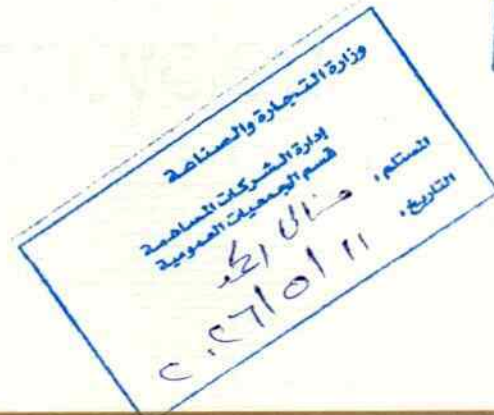 وزارة التجارة والصناعة
إدارة الشركات المساهمة
قسم الجمعيات العمومية
المستلم: منال
التاريخ: ٢٠٢٦/٥/١١